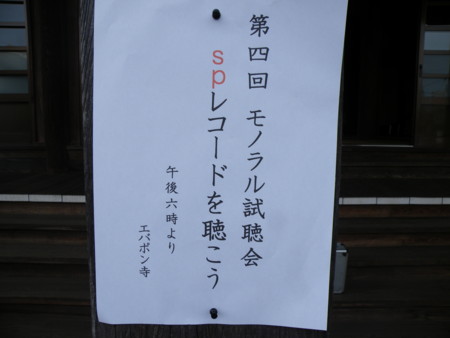 第四回 モノラル試聴会
spレコードを聴こう
午後六時より
エバポン寺